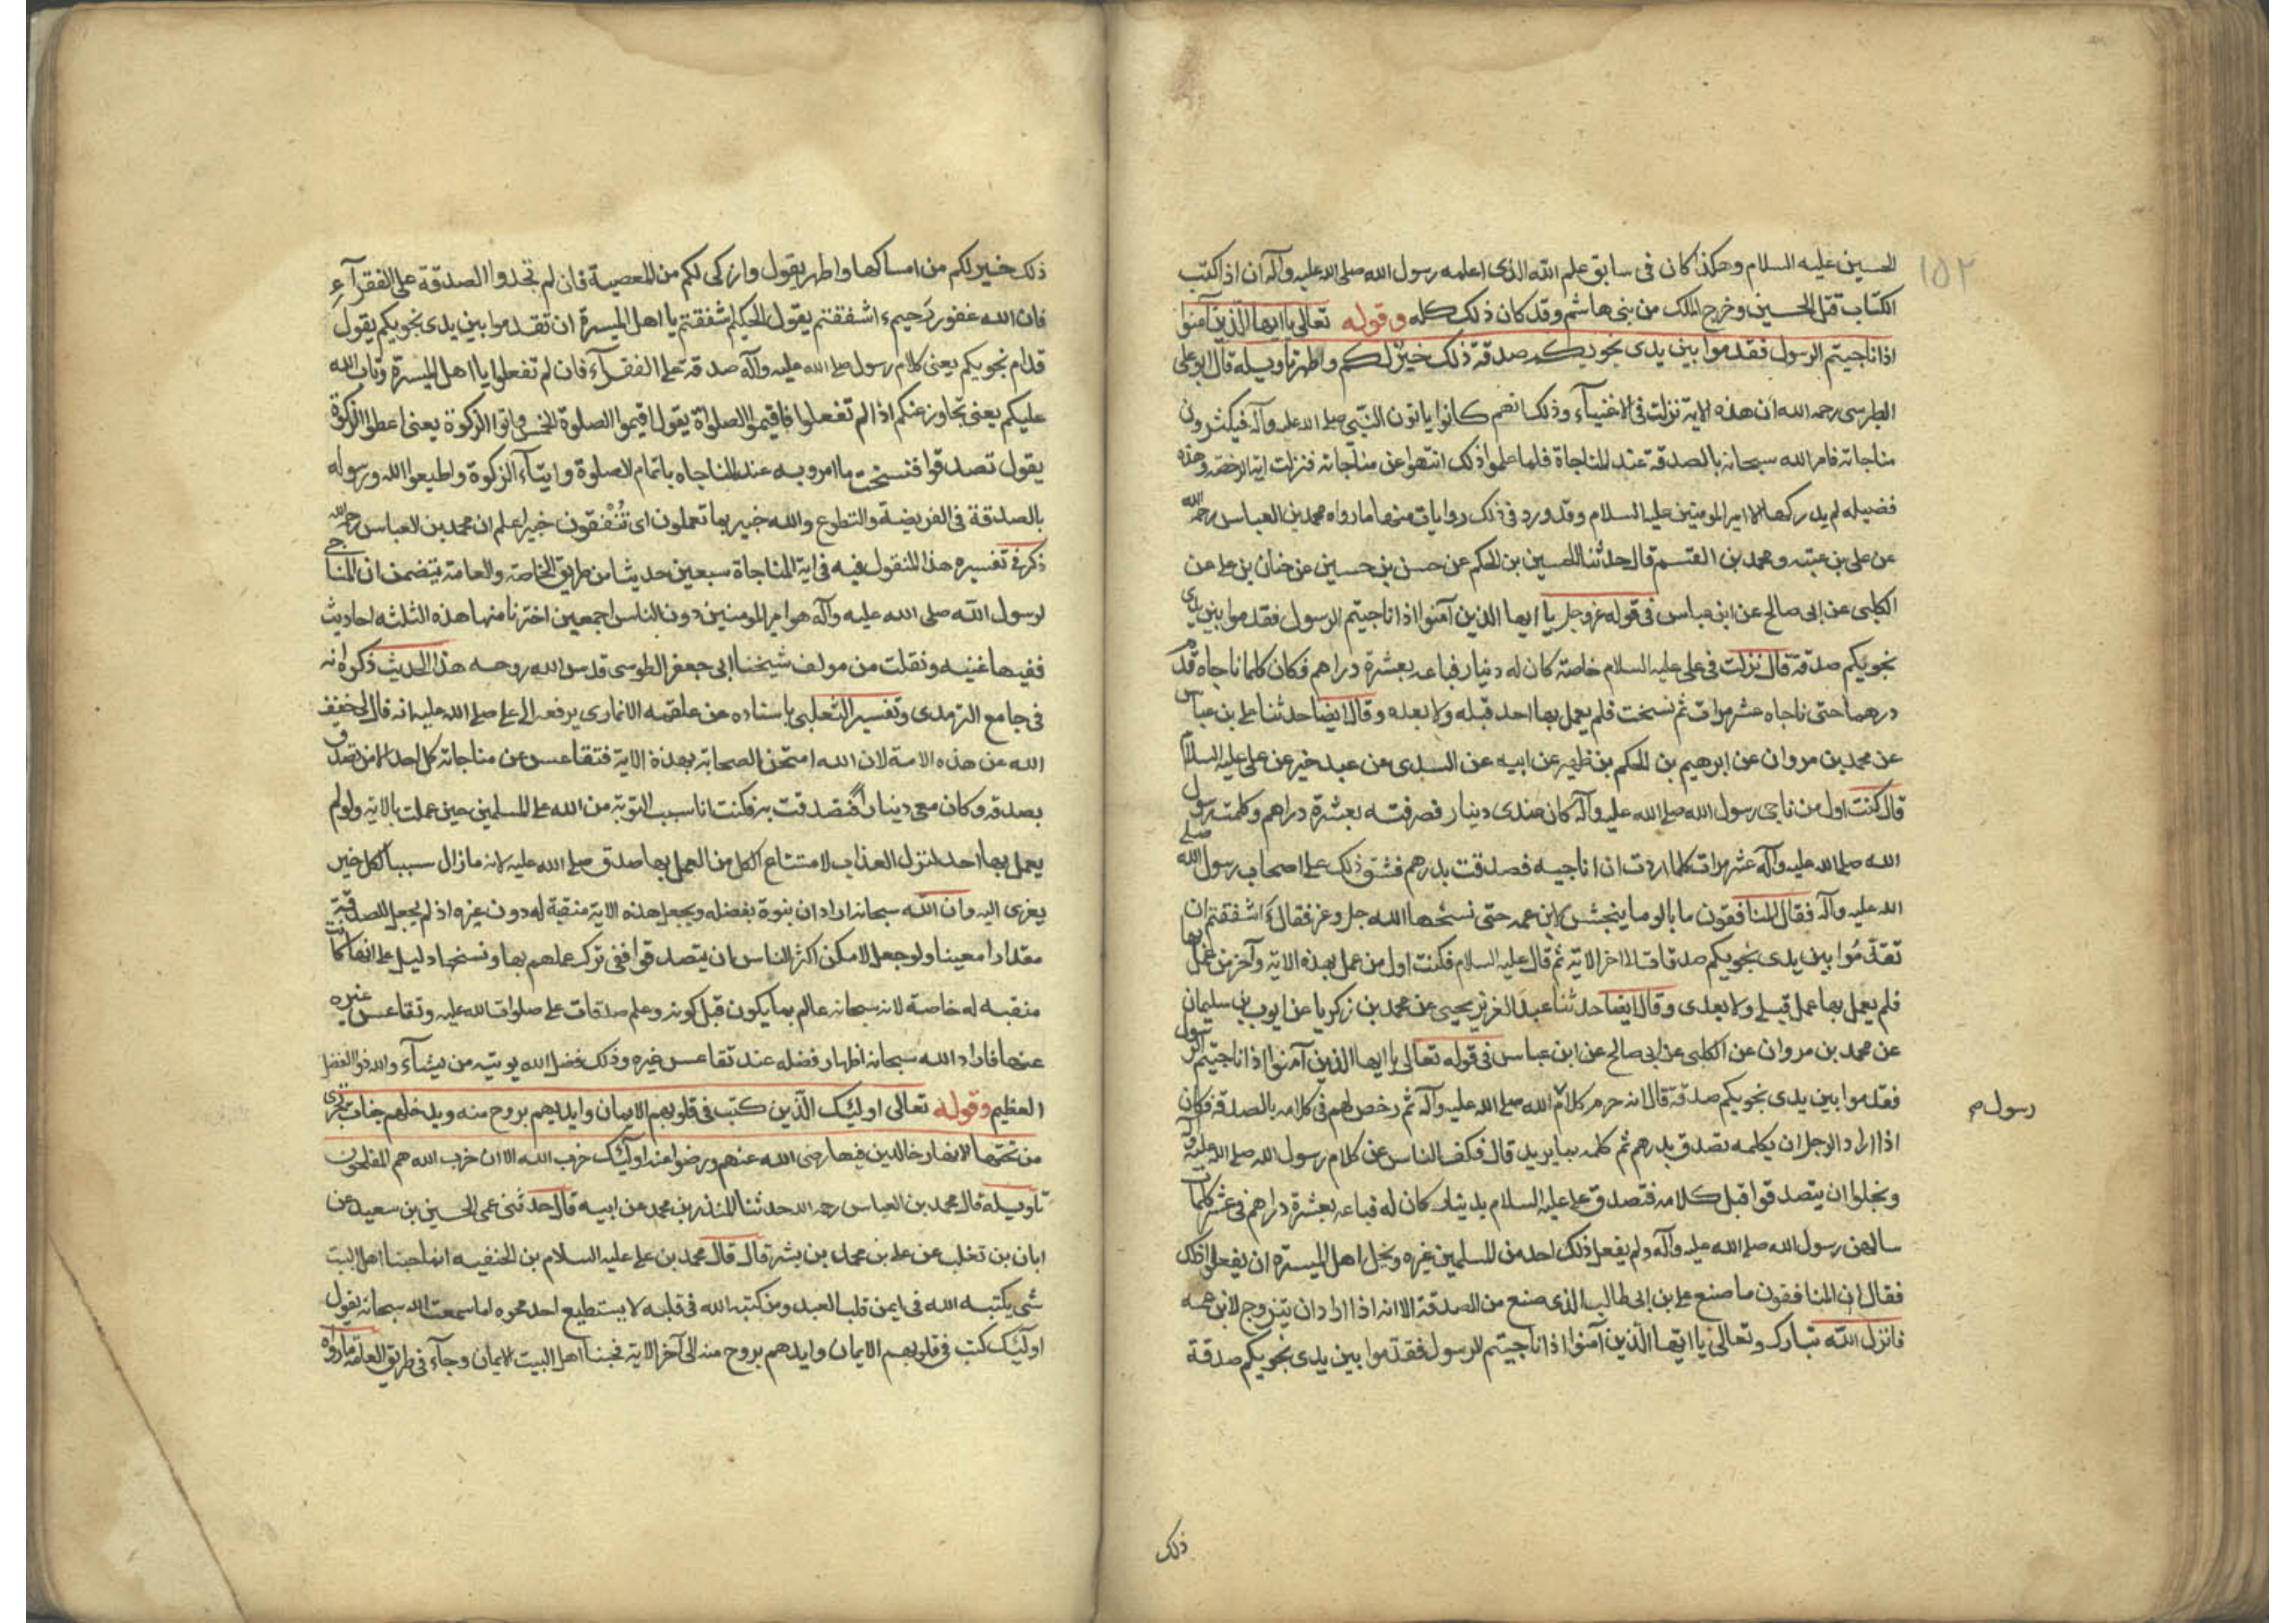 ١٥٢
الحسين عليه السلام وهكذا كان فى سابق علم الله الذى اعلمه رسول الله صلى الله عليه وآله ان اذا كتب
الكتاب قتل الحسين وخرج الملك من بنى هاشم وقد كان ذلك كله وقوله تعالى يا ايها الذين آمنوا
اذا ناجيتم الرسول فقدموا بين يدى نجويكم صدقة ذلك خير لكم واطهر تاويله قال ابو على
الطبرسى رحمه الله ان هذه الاية نزلت فى الاغنيآء وذلك انهم كانوا ياتون النبى صلى الله عليه وآله فيكثرون
مناجاته فامر الله سبحانه بالصدقة عند المناجاة فلما علموا ذلك انتهوا عن مناجاته فنزلت اية الرخصة وهذه
فضيله لم يدركها الا امير المومنين عليه السلام وقد ورد فى ذلك روايات منها ما رواه محمد بن العباس رحمه الله
عن على بن عتبه ومحمد بن القسم قال حدثنا الحسين بن الحكم عن حسن بن حسين عن حنان بن على عن
الكلبى عن ابى صالح عن ابن عباس فى قوله عز وجل يا ايها الذين آمنوا اذا ناجيتم الرسول فقدموا بين يدى
نجويكم صدقة قال نزلت فى على عليه السلام خاصة كان له دينار فباعه بعشرة دراهم فكان كلما ناجاه قدم
درهما حتى ناجاه عشر مرات ثم نسخت فلم يعمل بها احد قبله ولا بعده وقال ايضا حدثنا على بن عباس
عن محمد بن مروان عن ابرهيم بن الحكم بن ظهير عن ابيه عن السدى عن عبد خير عن على عليه السلام
قال كنت اول من ناجى رسول الله صلى الله عليه وآله كان عندى دينار فصرفته بعشرة دراهم وكلمت رسول
الله صلى الله عليه وآله عشر مرات كلما اردت ان اناجيه فصدقت بدرهم فشق ذلك على اصحاب رسول الله صلى
الله عليه وآله فقال المنافقون ما بالو ما ينجش لابن عمه حتى نسخها الله جل وعز فقال ءاشفقتم ان
تقدموا بين يدى نجويكم صدقات الى اخر الاية ثم قال عليه السلام فكنت اول من عمل بهذه الاية وآخر من عمل بها
فلم يعمل بها عمل قبلى ولا بعدى وقال ايضا حدثنا عبد العزيز يحيى عن محمد بن زكريا عن ايوب بن سليمان
عن محمد بن مروان عن الكلبى عن ابى صالح عن ابن عباس فى قوله تعالى يا ايها الذين آمنوا اذا ناجيتم الرسول
فقدموا بين يدى نجويكم صدقة قال انه حرم كلام الله صلى الله عليه وآله ثم رخص لهم فى كلامه بالصدقة فكان
رسول ص
اذا اراد الرجل ان يكلمه تصدق بدرهم ثم كلمه بما يريد قال فكف الناس عن كلام رسول الله صلى الله عليه وآله
وبخلوا ان يتصدقوا قبل كلامه فتصدق على عليه السلام بدينار كان له فباعه بعشرة دراهم فى عشر كلمات
سالهن رسول الله صلى الله عليه وآله ولم يفعل ذلك احد من المسلمين غيره وبخل اهل الميسرة ان يفعلوا ذلك
فقال ان المنافقون ما صنع على بن ابى طالب الذى صنع من الصدقة الا انه اذا اراد ان يتزوج لابن عمه
فانزل الله تبارك وتعالى يا ايها الذين آمنوا اذا ناجيتم الرسول فقدموا بين يدى نجويكم صدقة
ذلك
ذلك خير لكم من امساكها واطهر يقول وازكى لكم من المعصية فان لم تجدوا الصدقة على الفقرآء
فان الله غفور رحيم ءاشفقتم يقول الحكيم اشفقتم يا اهل الميسرة ان تقدموا بين يدى نجويكم يقول
قدام نجويكم يعنى كلام رسول صلى الله عليه وآله صدقة على الفقرآء فان لم تفعلوا يا اهل الميسرة وتاب الله
عليكم يعنى تجاوز عنكم اذا لم تفعلوا فاقيموا الصلواة يقول اقيموا الصلوة الخمس واتوا الزكوة يعنى اعطوا الزكوة
يقول تصدقوا فنسخت ما امروا به عند المناجاه باتمام الصلوة وايتآء الزكوة واطيعوا الله ورسوله
بالصدقة فى الفريضة والتطوع والله خبير بما تعملون اى تنفقون خبير اعلم ان محمد بن العباس رحمه الله
ذكر فى تفسيره هذا المنقول فيه فى اية المناجاة سبعين حديثا من طريق الخاصة والعامة يتضمن ان المناجى
لرسول الله صلى الله عليه وآله هو امير المومنين دون الناس اجمعين اخترنا منها هذه الثلثه احاديث
ففيها غنيه ونقلت من مولف شيخنا ابى جعفر الطوسى قدس الله روحه هذا الحديث ذكر انه
فى جامع الترمدى وتفسير الثعلبى باسناده عن علقمه الانمارى يرفعه الى على صلى الله عليه انه قال بى خفف
الله عن هذه الامة لان الله امتحن الصحابة بهذة الاية فتقاعس عن مناجاته كل احد الا من تصدق
بصدقة وكان معى دينار فتصدقت به فكنت انا سبب التوبة من الله على المسلمين حين عملت بالاية ولو لم
يعمل بها احد لنزل العذاب لامتناع الكل من العمل بها صدق صلى الله عليه لانه ما زال سببا لكل خير
يعزى اليه وان الله سبحانه اراد ان ينوة بفضله ويجعل هذه الاية منقبة له دون غيره اذ لم يجعل للصدقة
مقدارا معينا ولو جعل لامكن اكثر الناس ان يتصدقوا ففى ترك عملهم بها ونسخها دليل على انها كانت
منقبه له خاصة لانه سبحانه عالم بما يكون قبل كونه وعلم صدقات على صلوات الله عليه وتقاعس غيره
عنها فاراد الله سبحانه اظهار فضله عند تقاعس غيره وذلك فضل الله يوتيه من يشآء والله ذو الفضل
العظيم وقوله تعالى اولئك الذين كتب فى قلوبهم الايمان وايديهم بروح منه ويدخلهم جنات تجرى
من تحتها الانهار خالدين فيها رضى الله عنهم ورضوا عنه اولئك حزب الله الا ان حزب الله هم المفلحون
تاويله قال محمد بن العباس رحمه الله حدثنا المنذر بن محمد عن ابيه قال حدثنى عمى الحسين بن سعيد عن
ابان بن تغلب عن على بن محمد بن بشر قال قال محمد بن على عليه السلام بن الحنفيه انما حبنا اهل البيت
شى يكتبه الله فى ايمن قلب العبد ومن كتبه الله فى قلبه لا يستطيع احد محوه اما سمعت الله سبحانه يقول
اولئك كتب فى قلوبهم الايمان وايدهم بروح منه الى آخر الاية فحبنا اهل البيت الايمان وجآء فى طريق العامة ما رواه